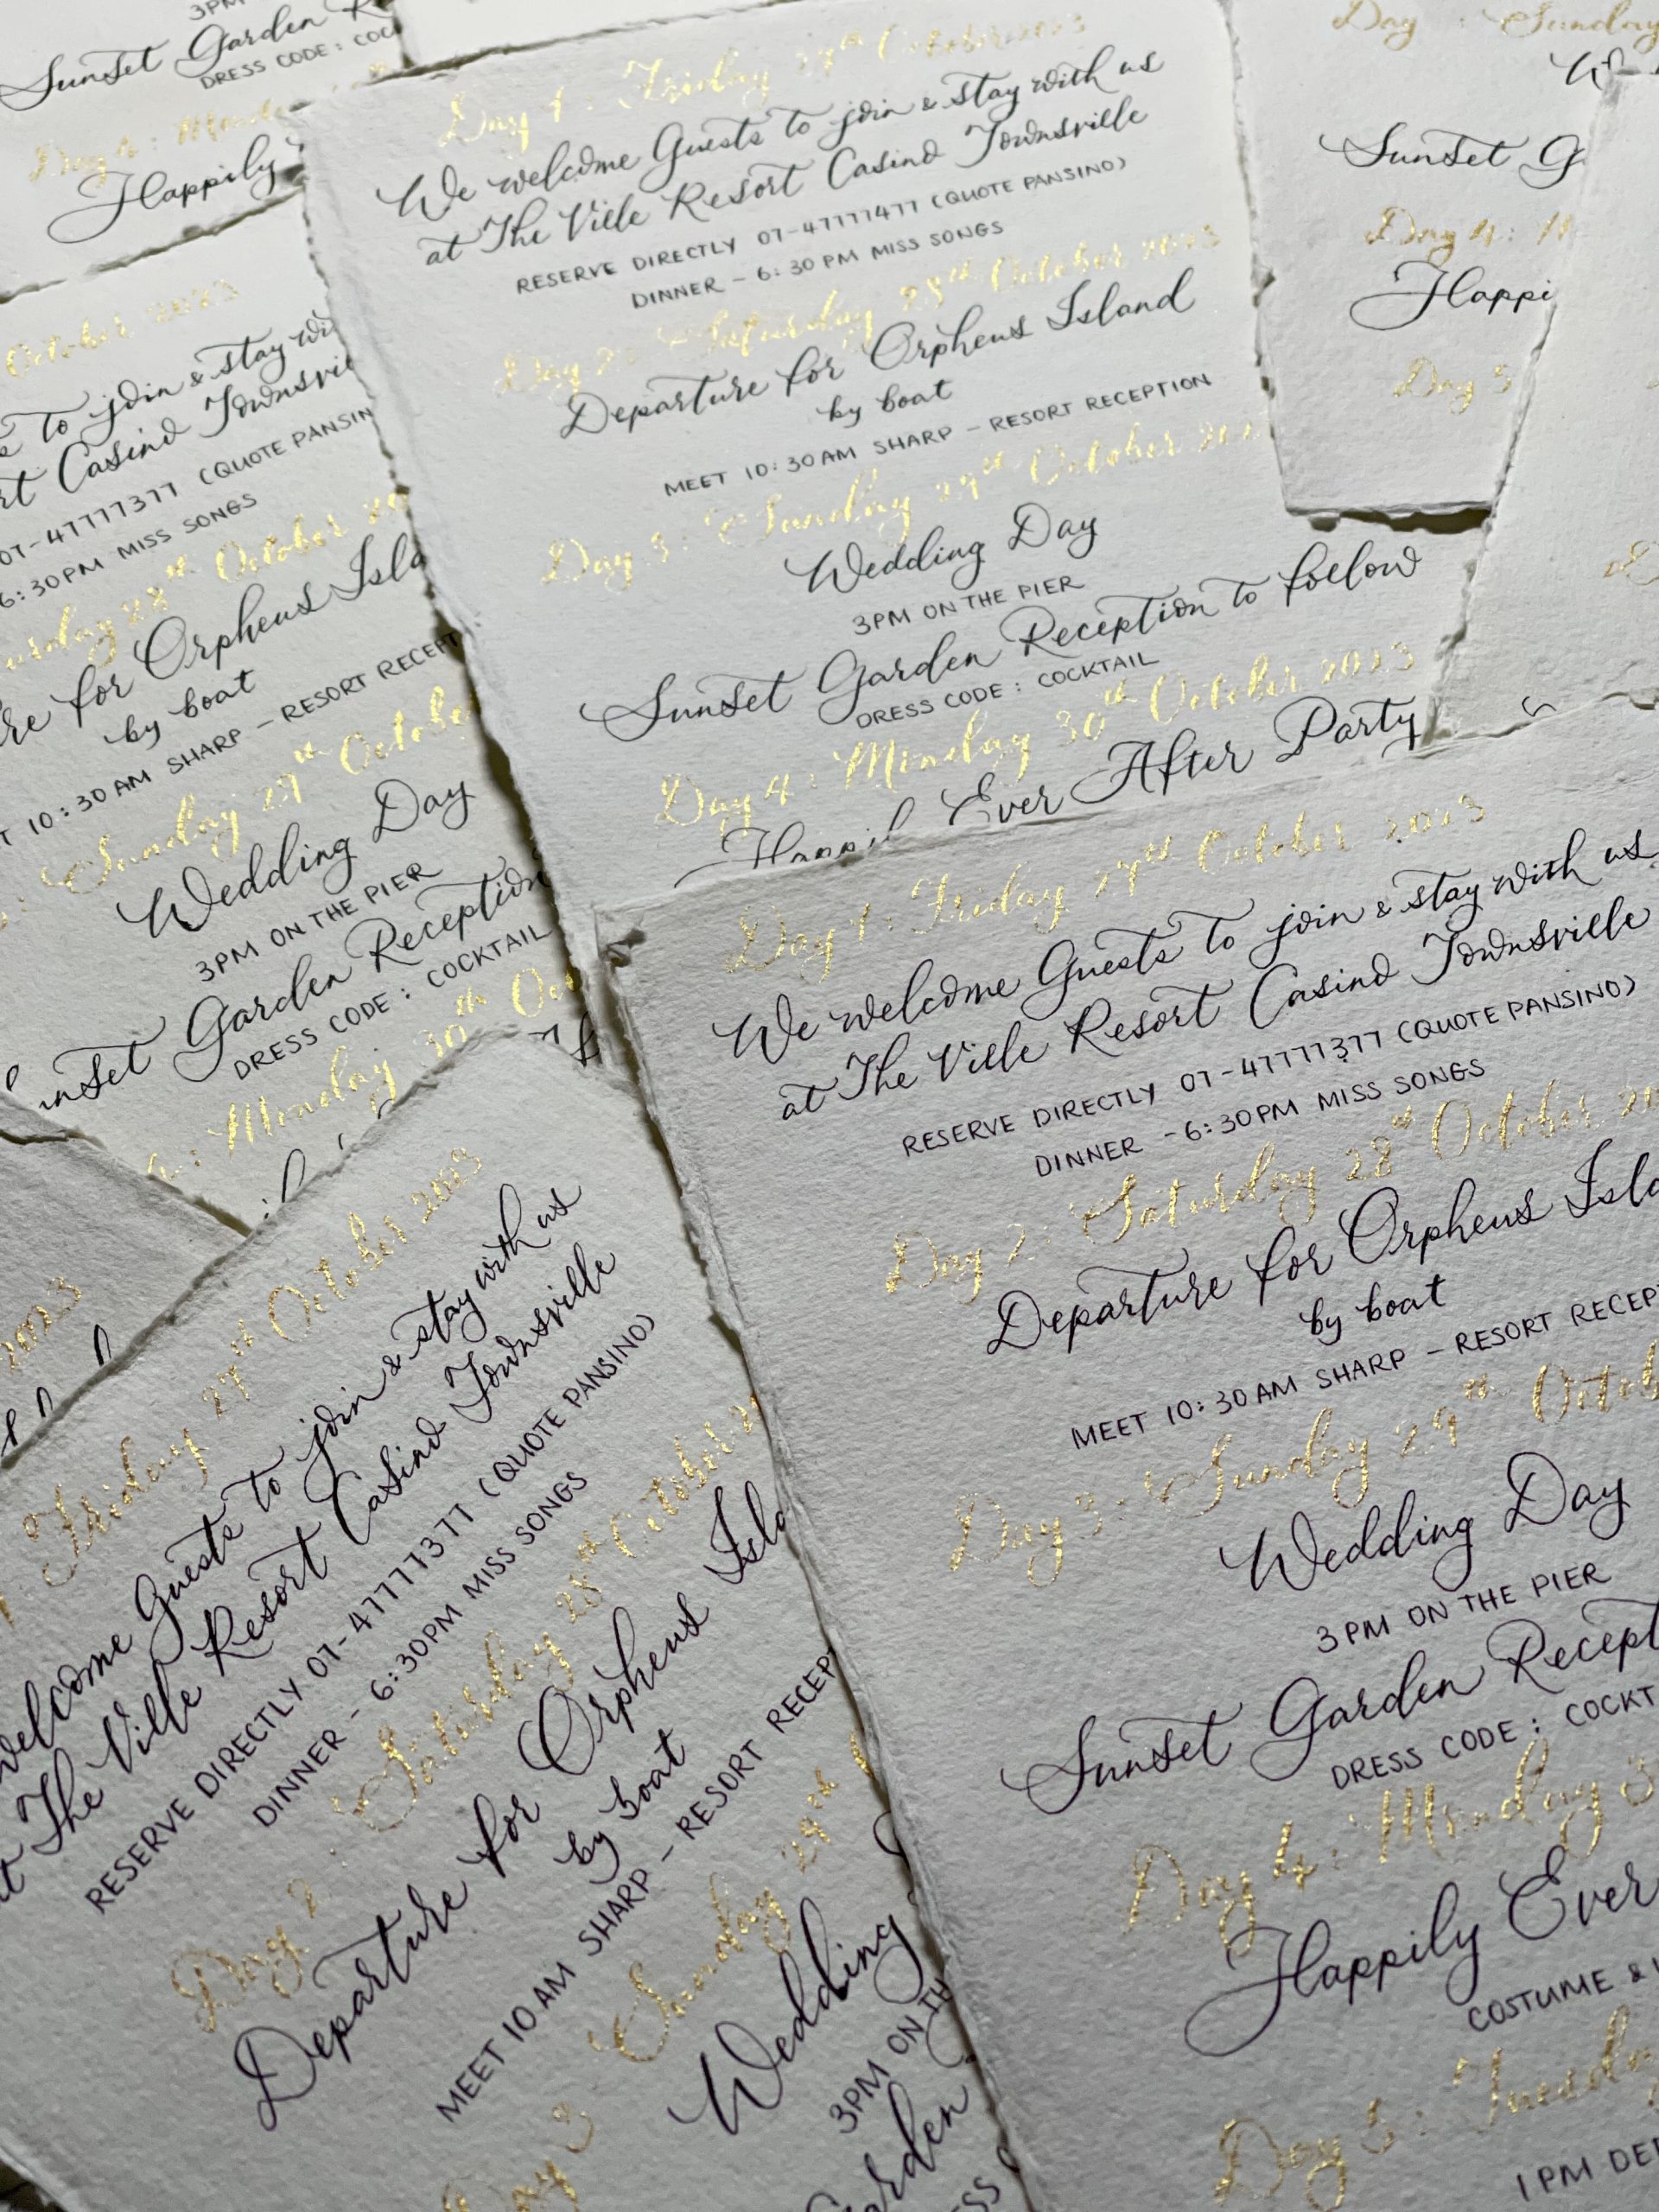 3PM
Sunset Garden
DRESS CODE: COC
Day 4:
Happily
Day 1: Friday 27th October 2023
We welcome Guests to join & stay with us
at The Ville Resort Casino Townsville
RESERVE DIRECTLY 07-47777477 (QUOTE PANSINO)
DINNER - 6:30PM MISS SONGS
Day 2: Saturday 28th October 2023
Departure for Orpheus Island
by boat
MEET 10:30AM SHARP - RESORT RECEPTION
Day 3: Sunday 29th October 202
Wedding Day
3PM ON THE PIER
Sunset Garden Reception to follow
DRESS CODE: COCKTAIL
Day 4: Monday 30th October 2023
Happil Ever After Party
Day : Sunday
Sunset G
Day 4: M
Happi
Day 5
October 2023
e to join & stay wi
rt Casino Townsvil
07-47777377 (QUOTE PANSIN
6:30PM MISS SONGS
urday 28th October 20
re for Orpheus Isla
by boat
T 10:30AM SHARP - RESORT RECEPT
: Sunday 29th Octobe
Wedding Day
3PM ON THE PIER
unset Garden Reception
DRESS CODE: COCKTAIL
4: Monday 30th Oct
Day 1: Friday 27th October 2023
We welcome Guests to join & stay with us
at The Ville Resort Casino Townsville
RESERVE DIRECTLY 07-47777377 (QUOTE PANSINO)
DINNER - 6:30PM MISS SONGS
Day 2: Saturday 28th October 20
Departure for Orpheus Isla
by boat
MEET 10:30AM SHARP - RESORT RECEP
Day 3: Sunday 29th Octob
Wedding Day
3PM ON THE PIER
Sunset Garden Recept
DRESS CODE: COCKT
Day 4: Monday 3
Happily Ever
COSTUME &
Day 5: Tuesday
1PM DE
2023
Friday 27th October 2023
welcome Guests to join & stay with us
t The Ville Resort Casino Townsville
RESERVE DIRECTLY 07-47777377 (QUOTE PANSINO)
DINNER - 6:30PM MISS SONGS
Day 2 Saturday 28th October 2
Departure for Orpheus Isla
by boat
MEET 10AM SHARP - RESORT RECEPT
Day 3 Sunday 29th
Wedding
3PM ON TH
Garden
ESS